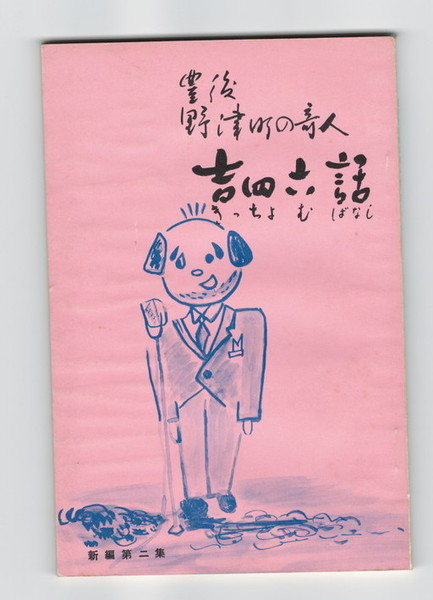 豊後
野津町の奇人
吉四六話
きっちょむばなし
新編第二集